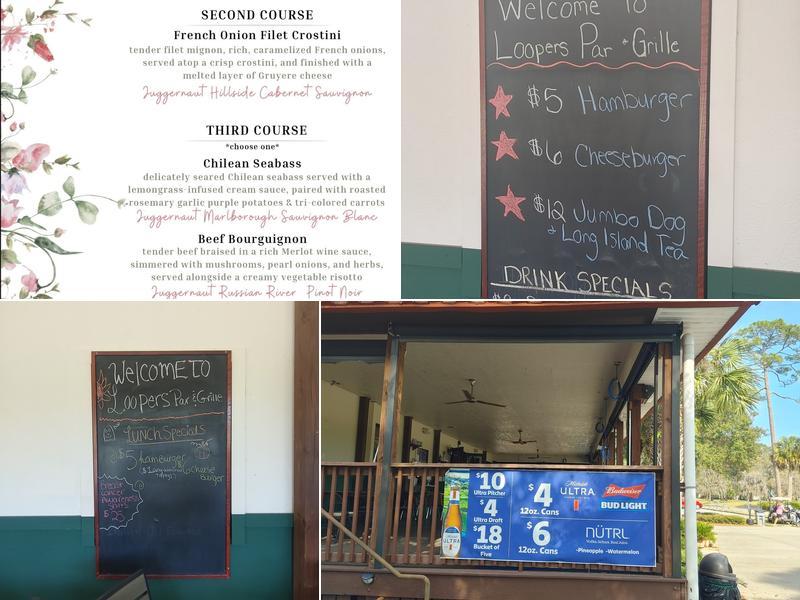 SECOND COURSE
French Onion Filet Crostini
tender filet mignon, rich, caramelized French onions,
served atop a crisp crostini, and finished with a
melted layer of Gruyere cheese
Juggernaut Hillside Cabernet Sauvignon
THIRD COURSE
*choose one*
Chilean Seabass
delicately seared Chilean seabass served with a
lemongrass-infused cream sauce, paired with roasted
rosemary garlic purple potatoes & tri-colored carrots
Juggernaut Marlborough Sauvignon Blanc
Beef Bourguignon
tender beef braised in a rich Merlot wine sauce,
simmered with mushrooms, pearl onions, and herbs,
served alongside a creamy vegetable risotto
Juggernaut Russian River Pinot Noir
Welcome To
Loopers Par & Grille
$5 Hamburger
$6 Cheeseburger
$12 Jumbo Dog
& Long Island Tea
DRINK SPECIALS
WelcomE TO
Loopers Par & Grille
LUNCH SPECIALS
$5 hamburger
$6 Cheese
Burger
Breast
Cancer
Awareness
Shirts
$25
$10
Ultra Pitcher
$4
Ultra Draft
$18
Bucket of
Five
$4
12oz. Cans
Michelob
ULTRA
Budweiser
BUD LIGHT
$6
12oz. Cans
NÜTRL
Vodka Seltzer. Real Juice.
•Pineapple •Watermelon
ULTRA